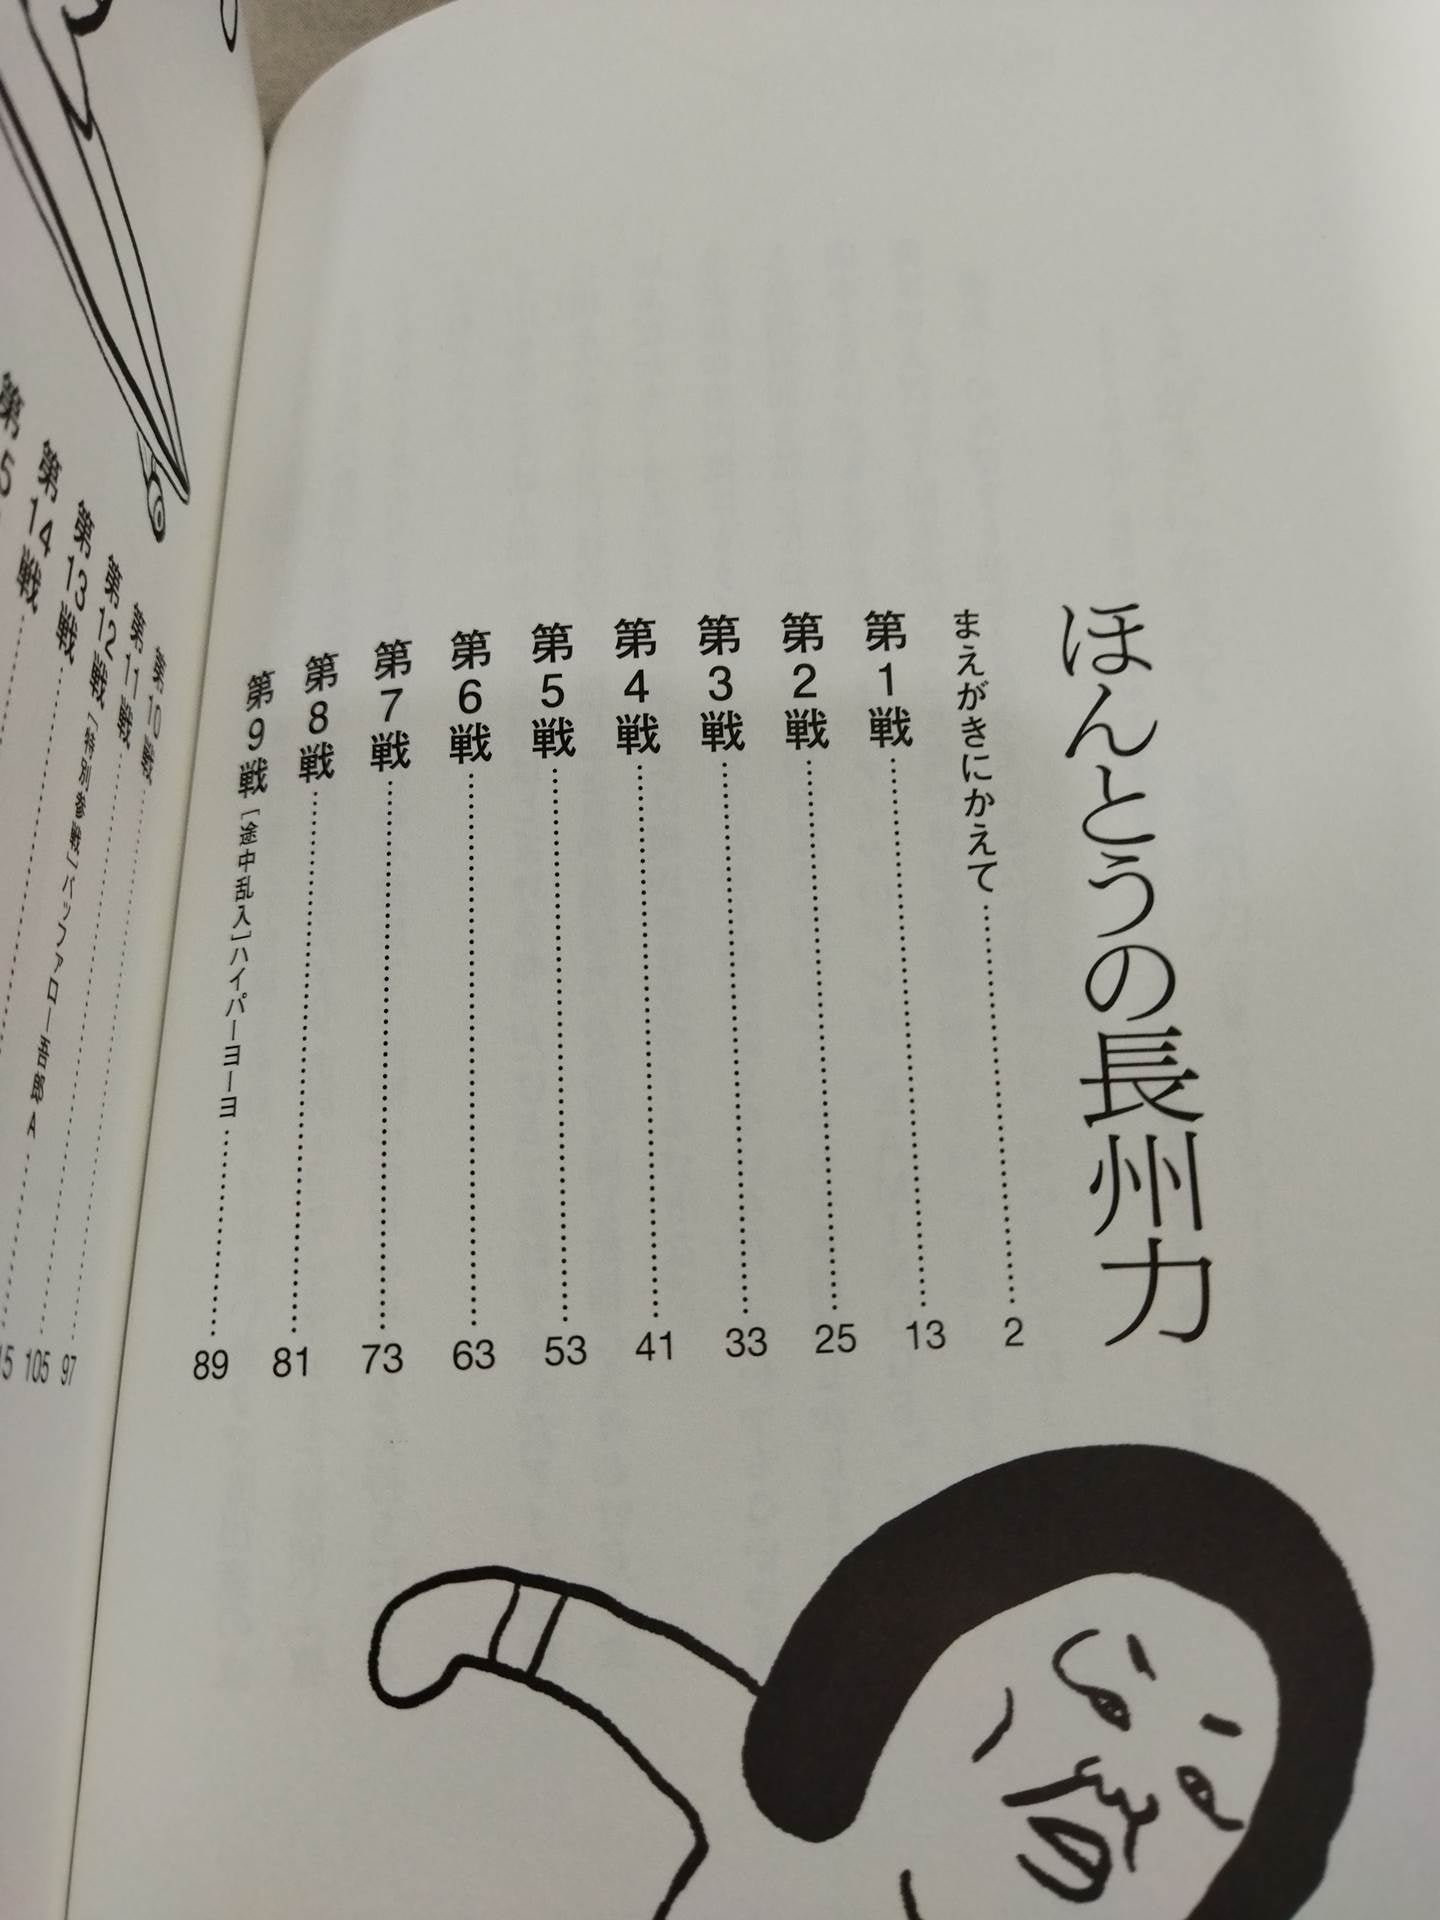 ほんとうの長州力
まえがきにかえて……2
第1戦……13
第2戦……25
第3戦……33
第4戦……41
第5戦……53
第6戦……63
第7戦……73
第8戦……81
第9戦[途中乱入]ハイパーヨーヨ……89
第10戦……97
第11戦……105
第12戦[特別参戦]バッファロー吾郎A……
第13戦……
第14戦……